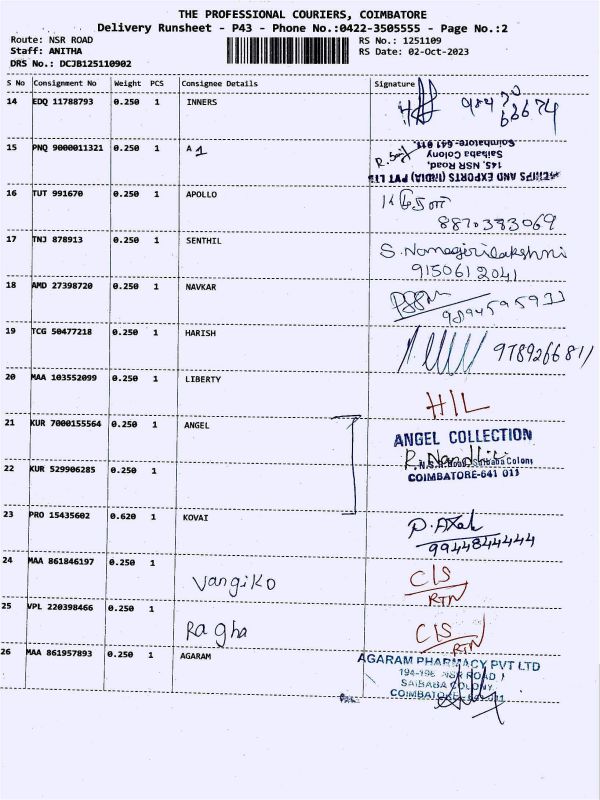 THE PROFESSIONAL COURIERS, COIMBATORE
Delivery Runsheet - P43 - Phone No.:0422-3505555 - Page No.:2
Route: NSR ROAD RS No.: 1251109
Staff: ANITHA RS Date: 02-Oct-2023
DRS No.: DCJB125110902
S No Consignment No Weight PCS Consignee Details Signature
14 EDQ 11788793 0.250 1 INNERS
15 PNQ 9000011321 0.250 1 A 1
Coimbatore-641 011.
Saibaba Colony
145, NSR Road,
AND EXPORTS (INDIA) PVT LTD
16 TUT 991670 0.250 1 APOLLO
8870383069
17 TNJ 878913 0.250 1 SENTHIL S. Namagirilakshmi
9150612041
18 AMD 27398720 0.250 1 NAVKAR
9894595911
19 TCG 50477218 0.250 1 HARISH 9789266811
20 MAA 103552099 0.250 1 LIBERTY H/L
21 KUR 7000155564 0.250 1 ANGEL
ANGEL COLLECTION
R. Nandhi
N.S.R. Road, Saibaba Colony
COIMBATORE-641 011
22 KUR 529906285 0.250 1
23 PRO 15435602 0.620 1 KOVAI
9944844444
24 MAA 861846197 0.250 1 Vangiko C/S
RTN
25 VPL 220398466 0.250 1 Ragha C/S
RTN
26 MAA 861957893 0.250 1 AGARAM
AGARAM PHARMACY PVT LTD
194-196 NSR ROAD
SAIBABA COLONY
COIMBATORE-641 011